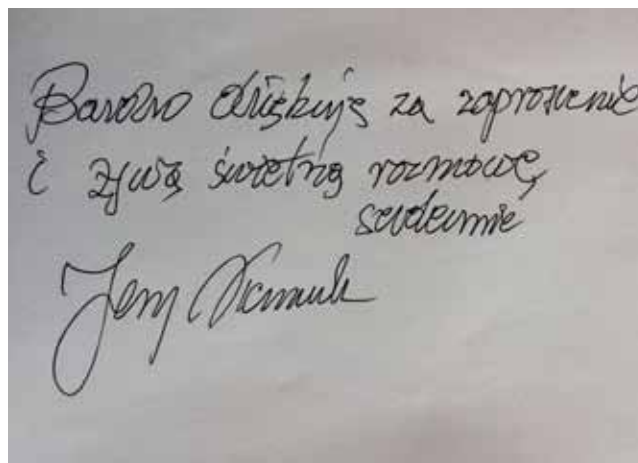 Bardzo dziękuję za zaproszenie
i żywą świetną rozmowę,
serdecznie
Jerzy